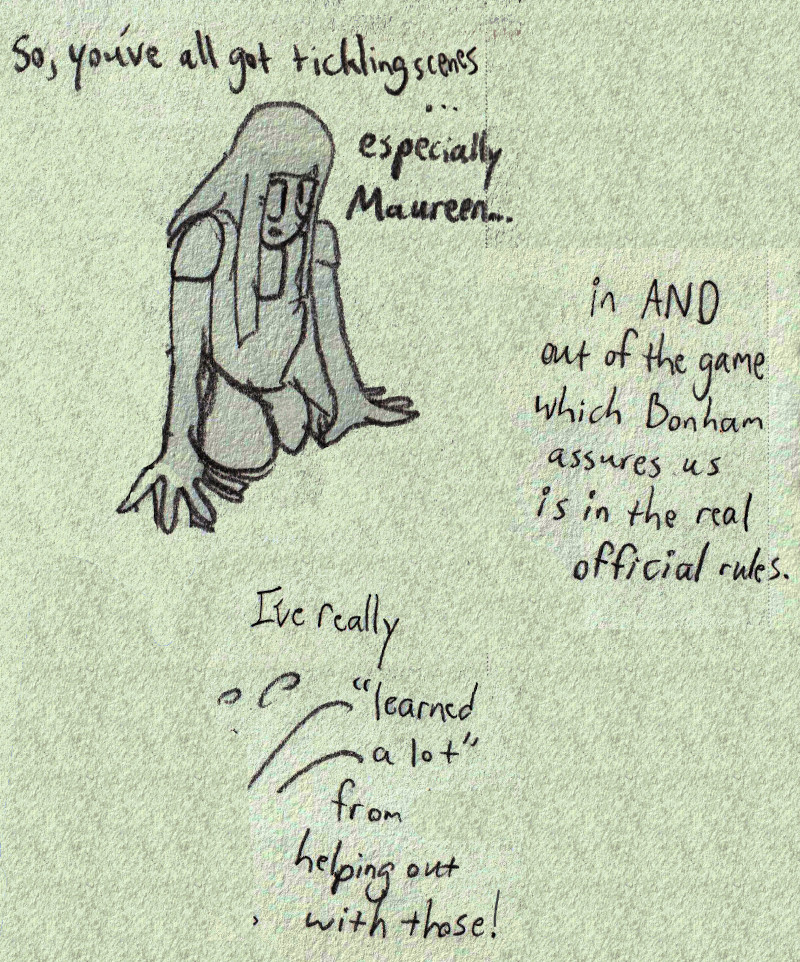 So, you've all got tickling scenes
...
especially
Maureen...
in AND
out of the game
which Bonham
assures us
is in the real
official rules.
I've really
"learned
a lot"
from
helping out
with those!